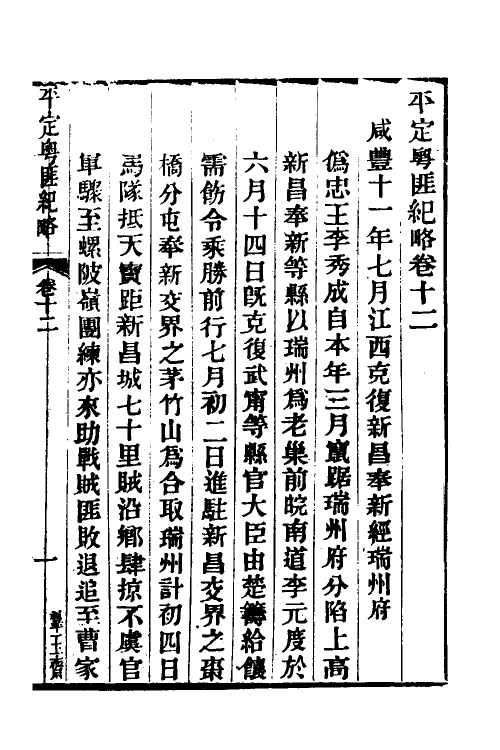 平定粵匪紀略卷十二
咸豐十一年七月江西克復新昌奉新經瑞州府
偽忠王李秀成自本年三月竄踞瑞州府分陷上高
新昌奉新等縣以瑞州為老巢前皖南道李元度於
六月十四日既克復武甯等縣官大臣由楚籌給饟
需飭令乘勝前行七月初二日進駐新昌交界之棗
橋分屯奉新交界之茅竹山為合取瑞州計初四日
馬隊抵天寶距新昌城七十里賊沿鄉肆掠不虞官
軍驟至螺陂嶺團練亦來助戰賊匪敗退追至曹家
平定粵匪紀略
卷十二
一